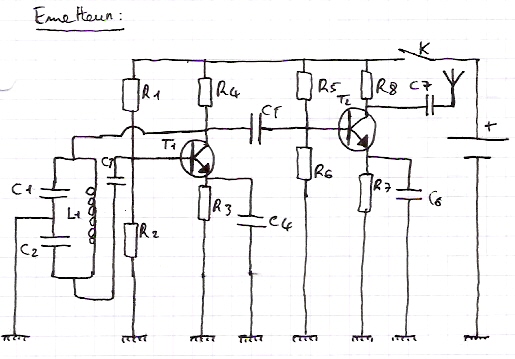 Emetteur:
K
R1
R4
R5
R8
C7
T2
C5
T1
+
C1
L1
C2
R2
R3
C4
R6
R7
C6